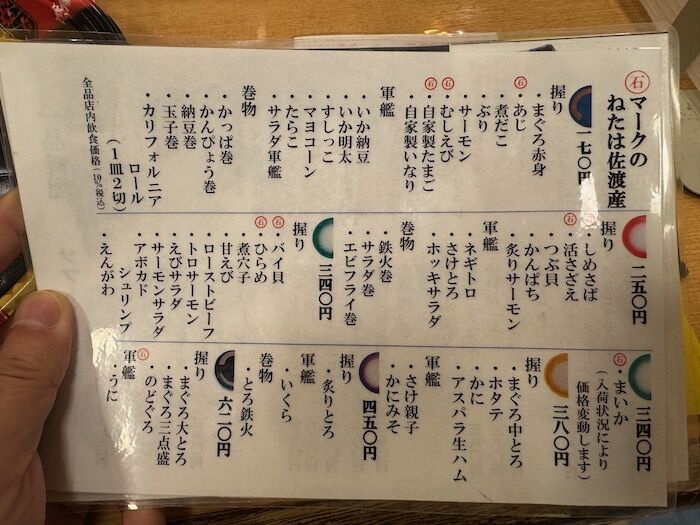 ㊨マークの
ねたは佐渡産
一七〇円
握り
・まぐろ赤身
㊨・あじ
・煮だこ
・ぶり
・サーモン
㊨・むしえび
㊨・自家製たまご
・自家製いなり
軍艦
・いか納豆
・いか明太
・すしっこ
・マヨコーン
・たらこ
・サラダ軍艦
巻物
・かっぱ巻
・かんぴょう巻
・納豆巻
・玉子巻
・カリフォルニア
ロール
(1皿2切)
全品店内飲食価格(10%税込)
二五〇円
握り
・しめさば
・活さざえ
・つぶ貝
・かんぱち
・炙りサーモン
軍艦
・ネギトロ
・さけとろ
・ホッキサラダ
巻物
・鉄火巻
・サラダ巻
・エビフライ巻
三四〇円
握り
・バイ貝
・ひらめ
・煮穴子
・甘えび
・ローストビーフ
・トロサーモン
・えびサラダ
・サーモンサラダ
・アボカド
シュリンプ
・えんがわ
三四〇円
・まいか
(入荷状況により
価格変動します)
三八〇円
握り
・まぐろ中とろ
・ホタテ
・かに
・アスパラ生ハム
軍艦
・さけ親子
・かにみそ
四五〇円
握り
・炙りとろ
軍艦
・いくら
巻物
・とろ鉄火
六二〇円
握り
・まぐろ大とろ
・まぐろ三点盛
・のどぐろ
軍艦
・うに